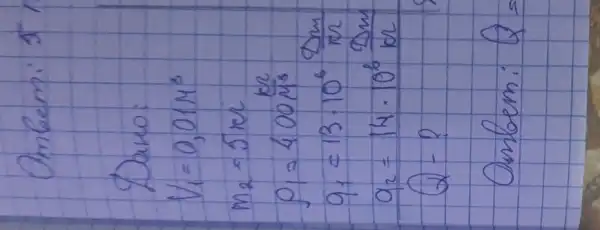 Ответ:
Дано:
V₁ = 0,01 м³
m₂ = 5 кг
ρ₁ = 400 кг/м³
q₁ = 13 · 10⁶ Дж/кг
q₂ = 14 · 10⁶ Дж/кг
Q - ?
Ответ: Q =